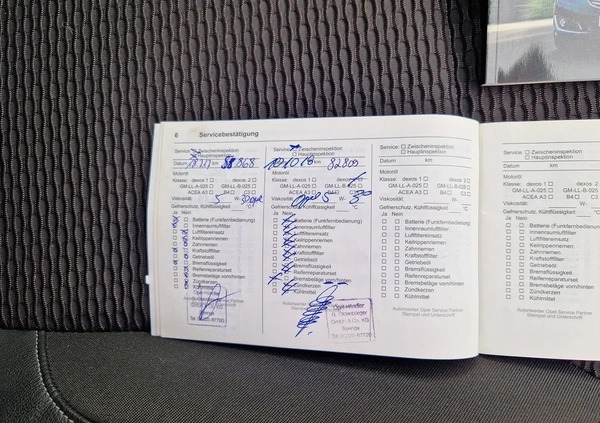 6 Servicebestätigung
Service: Zwischeninspektion
Hauptinspektion
Datum km 868
Motoröl
Klasse: dexos 1 dexos 2
GM-LL-A-025 GM-LL-B-025
ACEA A3 B4 C3
Viskosität: 5 W- 30
Gefrierschutz, Kühlflüssigkeit: °C
Ja Nein
Batterie (Funkfernbedienung)
Innenraumluftfilter
Luftfiltereinsatz
Keilrippenriemen
Zahnriemen
Kraftstofffilter
Getriebeöl
Bremsflüssigkeit
Reifenreparaturset
Bremsbeläge vorn/hinten
Zündkerzen
Service: Zwischeninspektion
Hauptinspektion
Datum km 82809
Motoröl
Klasse: dexos 1 dexos
GM-LL-A-025 GM-LL-B-025
ACEA A3 B4 C3
Viskosität: Opel 5 W- 30
Gefrierschutz, Kühlflüssigkeit: °C
Ja Nein
Batterie (Funkfernbedienung)
Innenraumluftfilter
Luftfiltereinsatz
Keilrippenriemen
Zahnriemen
Kraftstofffilter
Getriebeöl
Bremsflüssigkeit
Reifenreparaturset
Bremsbeläge vorn/hinten
Zündkerzen
Kühlmittel
Opel-Händler
GmbH & Co. KG
Spenge
Service: Zwischeninspektion
Hauptinspektion
Datum km
Motoröl
Klasse: dexos 1 dexos 2
GM-LL-A-025 GM-LL-B-025
ACEA A3 B4 C3
Viskosität: W-
Gefrierschutz, Kühlflüssigkeit: °C
Ja Nein
Batterie (Funkfernbedienung)
Innenraumluftfilter
Luftfiltereinsatz
Keilrippenriemen
Zahnriemen
Kraftstofffilter
Getriebeöl
Bremsflüssigkeit
Reifenreparaturset
Bremsbeläge vorn/hinten
Zündkerzen
Kühlmittel
Autorisierter Opel Service Partner
Stempel und Unterschrift
Service: Zwischeninspektion
Hauptinspektion
Datum km
Motoröl
Klasse: dexos 1
GM-LL-A-025 GM-
ACEA A3 B4
Viskosität:
Gefrierschutz, Kühlflüssigkeit:
Ja Nein
Batterie (Funkfernbedienung)
Innenraumluftfilter
Luftfiltereinsatz
Keilrippenriemen
Zahnriemen
Kraftstofffilter
Getriebeöl
Bremsflüssigkeit
Reifenreparaturset
Bremsbeläge vorn/hinten
Zündkerzen
Kühlmittel
Autorisierter Opel Service Partner
Stempel und Unterschrift